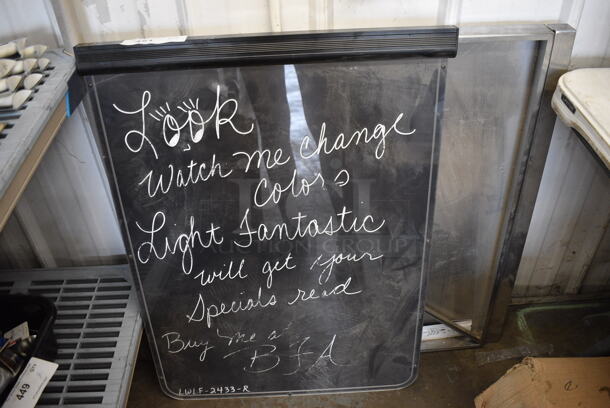 Look
Watch me change
Colors
Light Fantastic
will get your
Specials read
Buy me at
BFA
LWLF-2433-R
449
AUCTION GROUP